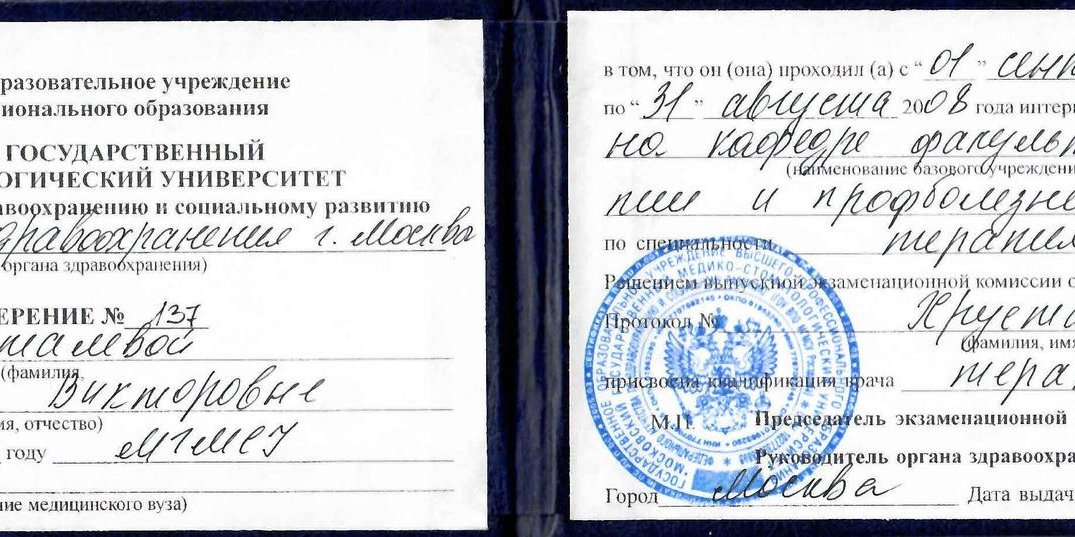 разовательное учреждение
сионального образования
ГОСУДАРСТВЕННЫЙ
ОГИЧЕСКИЙ УНИВЕРСИТЕТ
авоохранению и социальному развитию
здравоохранения г. Москва
органа здравоохранения)
ЕРЕНИЕ № 137
талевой
(фамилия,
Викторовне
ия, отчество)
году МГМСУ
ние медицинского вуза)
в том, что он (она) проходил (а) с “ 01 ” сент
по “ 31 ” августа 2008 года интерн
на кафедре факульт
(наименование базового учреждени
пии и профболезне
по специальности терапия
Решением выпускной экзаменационной комиссии о
Протокол № Хруста
(фамилия, имя
присвоена квалификация врача тера
М.П. Председатель экзаменационной
Руководитель органа здравоохра
Город Москва Дата выдач